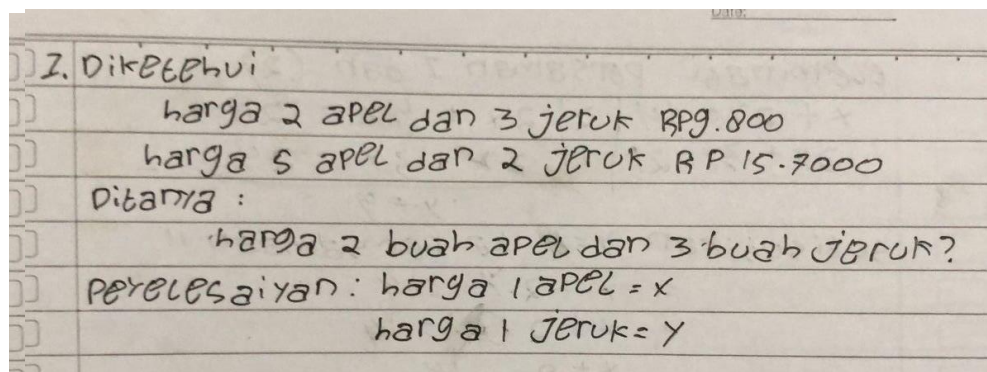 Date:
1. Diketehui
harga 2 apel dan 3 jeruk Rp9.800
harga 5 apel dan 2 jeruk RP 15.7000
Ditanya :
harga 2 buah apel dan 3 buah jeruk?
Peyelesaiyan : harga 1 apel = x
harga 1 jeruk = y